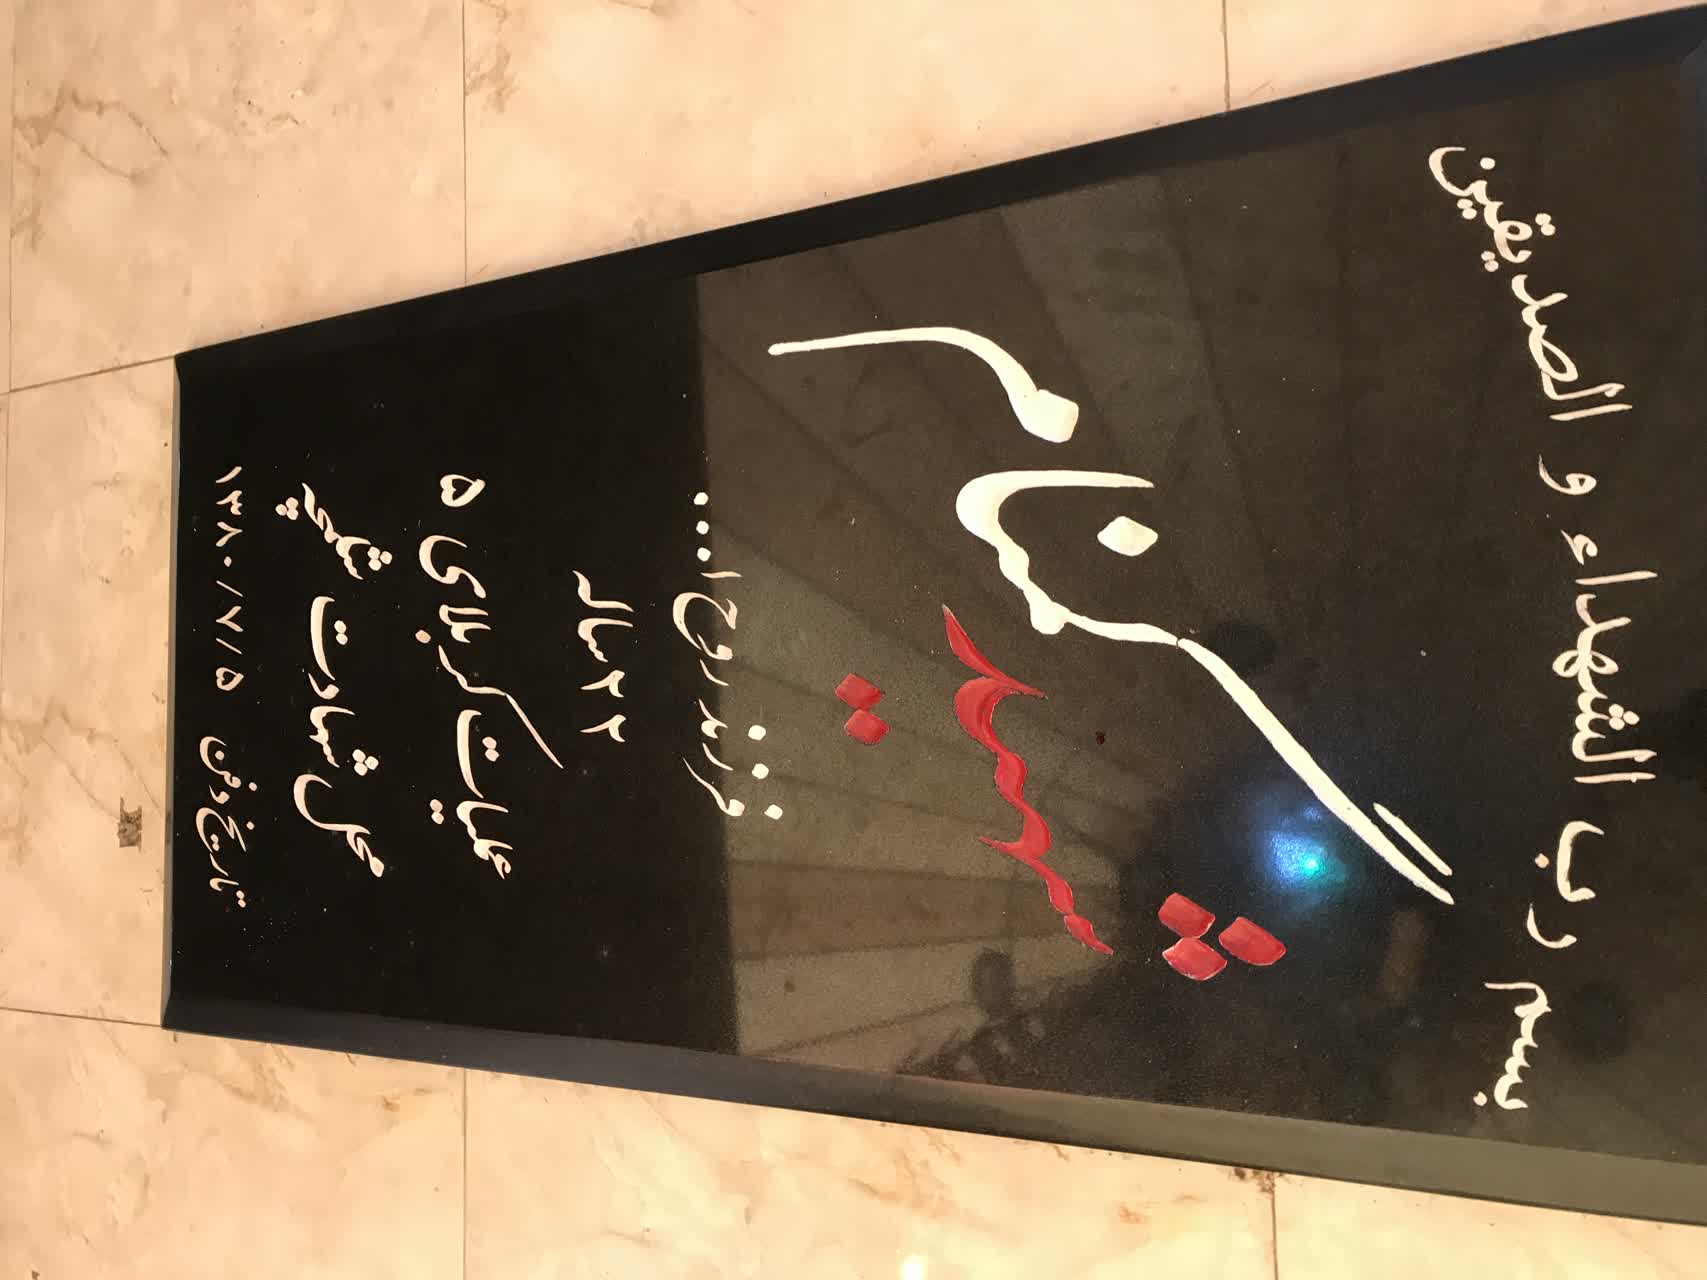 بسم رب الشهداء و الصدیقین
شهید
گمنام
فرزند روح ا...
۲۲ ساله
عملیات کربلای ۵
محل شهادت شلمچه
تاریخ دفن ۱۳۸۰/۷/۵